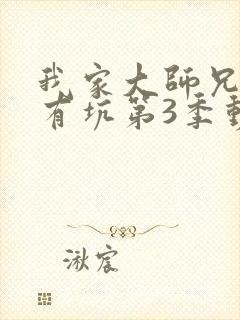 我家大師兄
有坑第3季動
湫宸